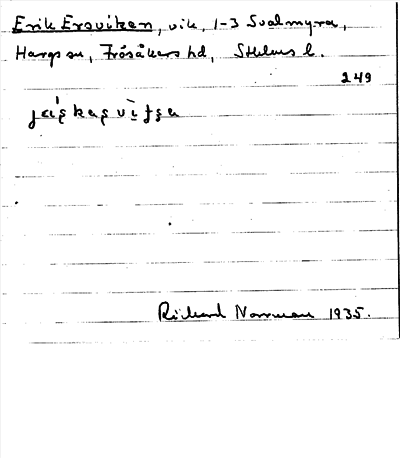 Erik Ersviken, vik, 1-3 Svalmyra,
Hargs sn, Frösåkers hd, Sthlms l.
249
Rickard Norrman 1935.